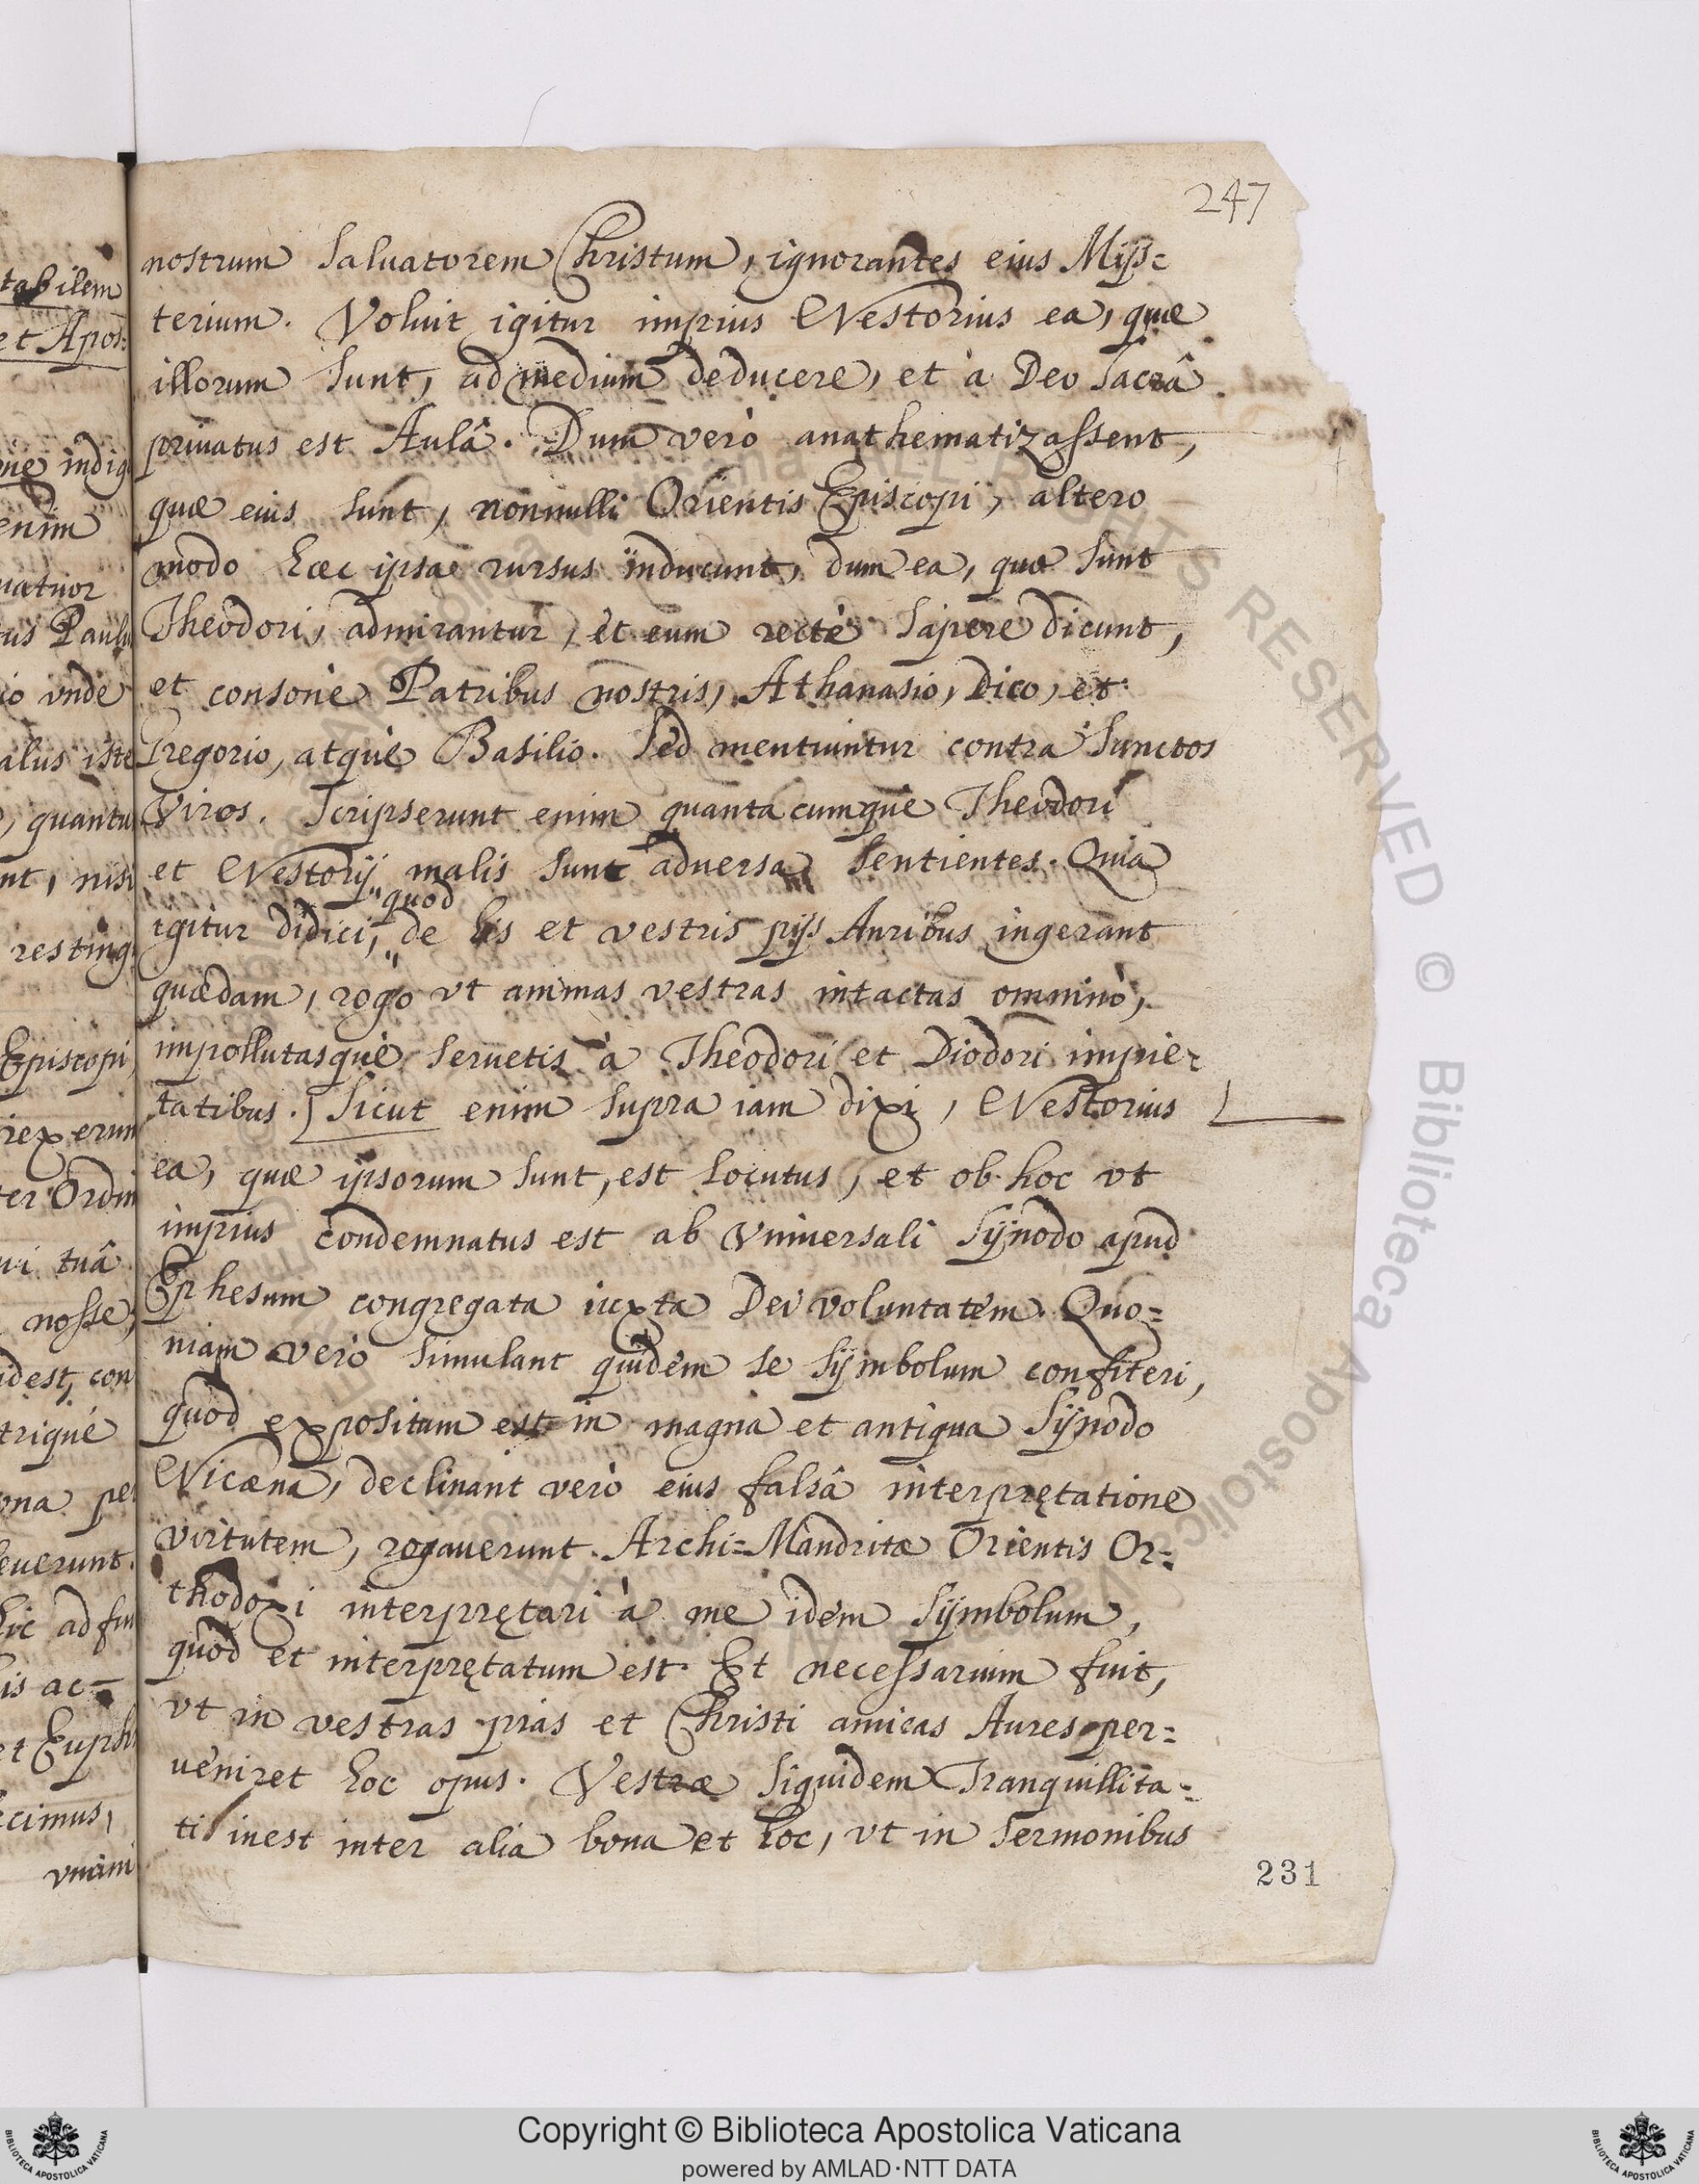 247
nostrum Saluatorem Christum, ignorantes eius Mijs=
terium. Voluit igitur impius Nestorius ea, quæ
illorum sunt, ad medium deducere, et à Deo sacrâ
priuatus est Aulâ. Dum verò anathematizassent,
quæ eius sunt, nonnulli Orientis Episcopi, altero
modo hæc ipsa rursus inducunt, dum ea, quæ sunt
Theodori, admirantur, et eum rectè sapere dicunt,
et consonè Patribus nostris, Athanasio, Dico, et
Gregorio, atquè Basilio. Sed mentiuntur contra Sanctos
Viros. Scripserunt enim quantacumquè Theodori
et Nestorij malis sunt aduersa sentientes. Quia
quod
igitur didici, de his et vestris pijs Auribus ingerant
quædam, rogo vt animas vestras intactas omninò,
impollutasquè seruetis à Theodori et Diodori impie=
tatibus. [Sicut enim supra iam dixi, Nestorius
ea, quæ ipsorum sunt, est locutus, et ob hoc vt
impius condemnatus est ab vniuersali Sÿnodo apud
Ephesum congregata iuxta Dei voluntatem. Quo=
niam verò simulant quidem se Sÿmbolum confiteri,
quod expositum est in magna et antiqua Sÿnodo
Nicæna, declinant verò eius falsâ interprętatione
virtutem, rogauerunt Archi=Mandritæ Orientis Or=
thodoxi interprętari à me idem Sÿmbolum,
quod et interprętatum est. Et necessarium fuit,
vt in vestras pias et Christi amicas Aures per=
ueniret hoc opus. Vestræ siquidem Tranquillita=
ti inest inter alia bona et hoc, vt in sermonibus
231
tabilem
et Apos=
enim
uatuor
us Paulu
io vnde
alus iste
quantu
nt, nisi
resting
Episcopi
rexerun
ter Ordin
ui tuâ
nosse,
idest, con
triquè
ona pe
euerunt.
hic ad fin
is ac=
et Euph
cimus,
vnam
© Biblioteca Apostolica Vaticana ALL RIGHTS RESERVED
Copyright © Biblioteca Apostolica Vaticana
powered by AMLAD·NTT DATA
BIBLIOTECA APOSTOLICA VATICANA
BIBLIOTECA APOSTOLICA VATICANA